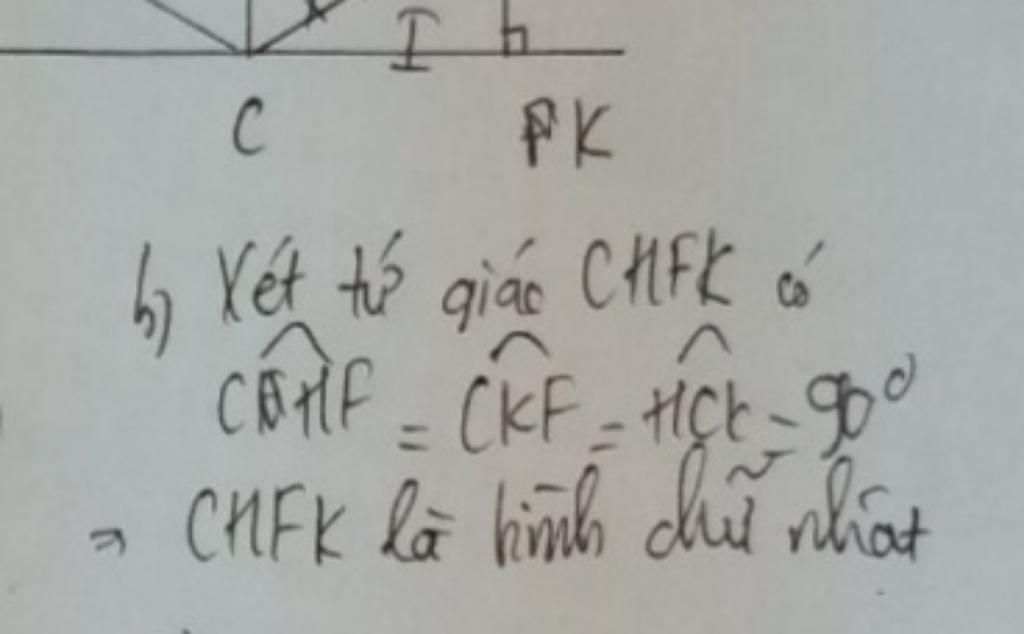 I
C K
b) Xét tứ giác CHFK có
CHF = CKF = HCK = 90°
⇒ CHFK là hình chữ nhật